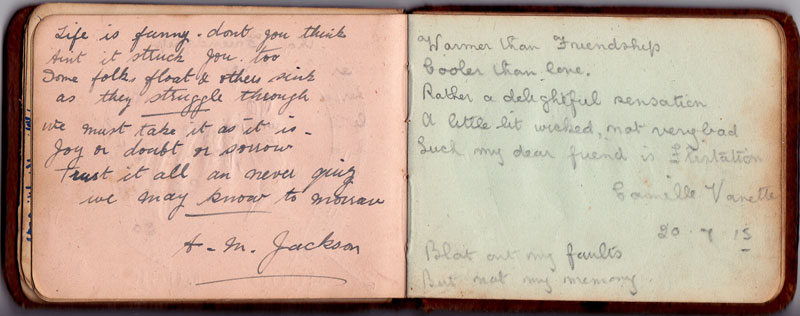 Life is funny - dont you think
Aint it struck you. too
Some folks float & others sink
as they struggle through
we must take it as it is -
Joy or doubt or sorrow
Trust it all an never quiz
we may know to morrow
A - M. Jackson
Warmer than Friendship
Cooler than love.
Rather a delightful sensation
A little bit wicked, not very bad
Such my dear friend is Flirtation
Camille Vanette
20 - 7 15
Blot out my faults
But not my memory.